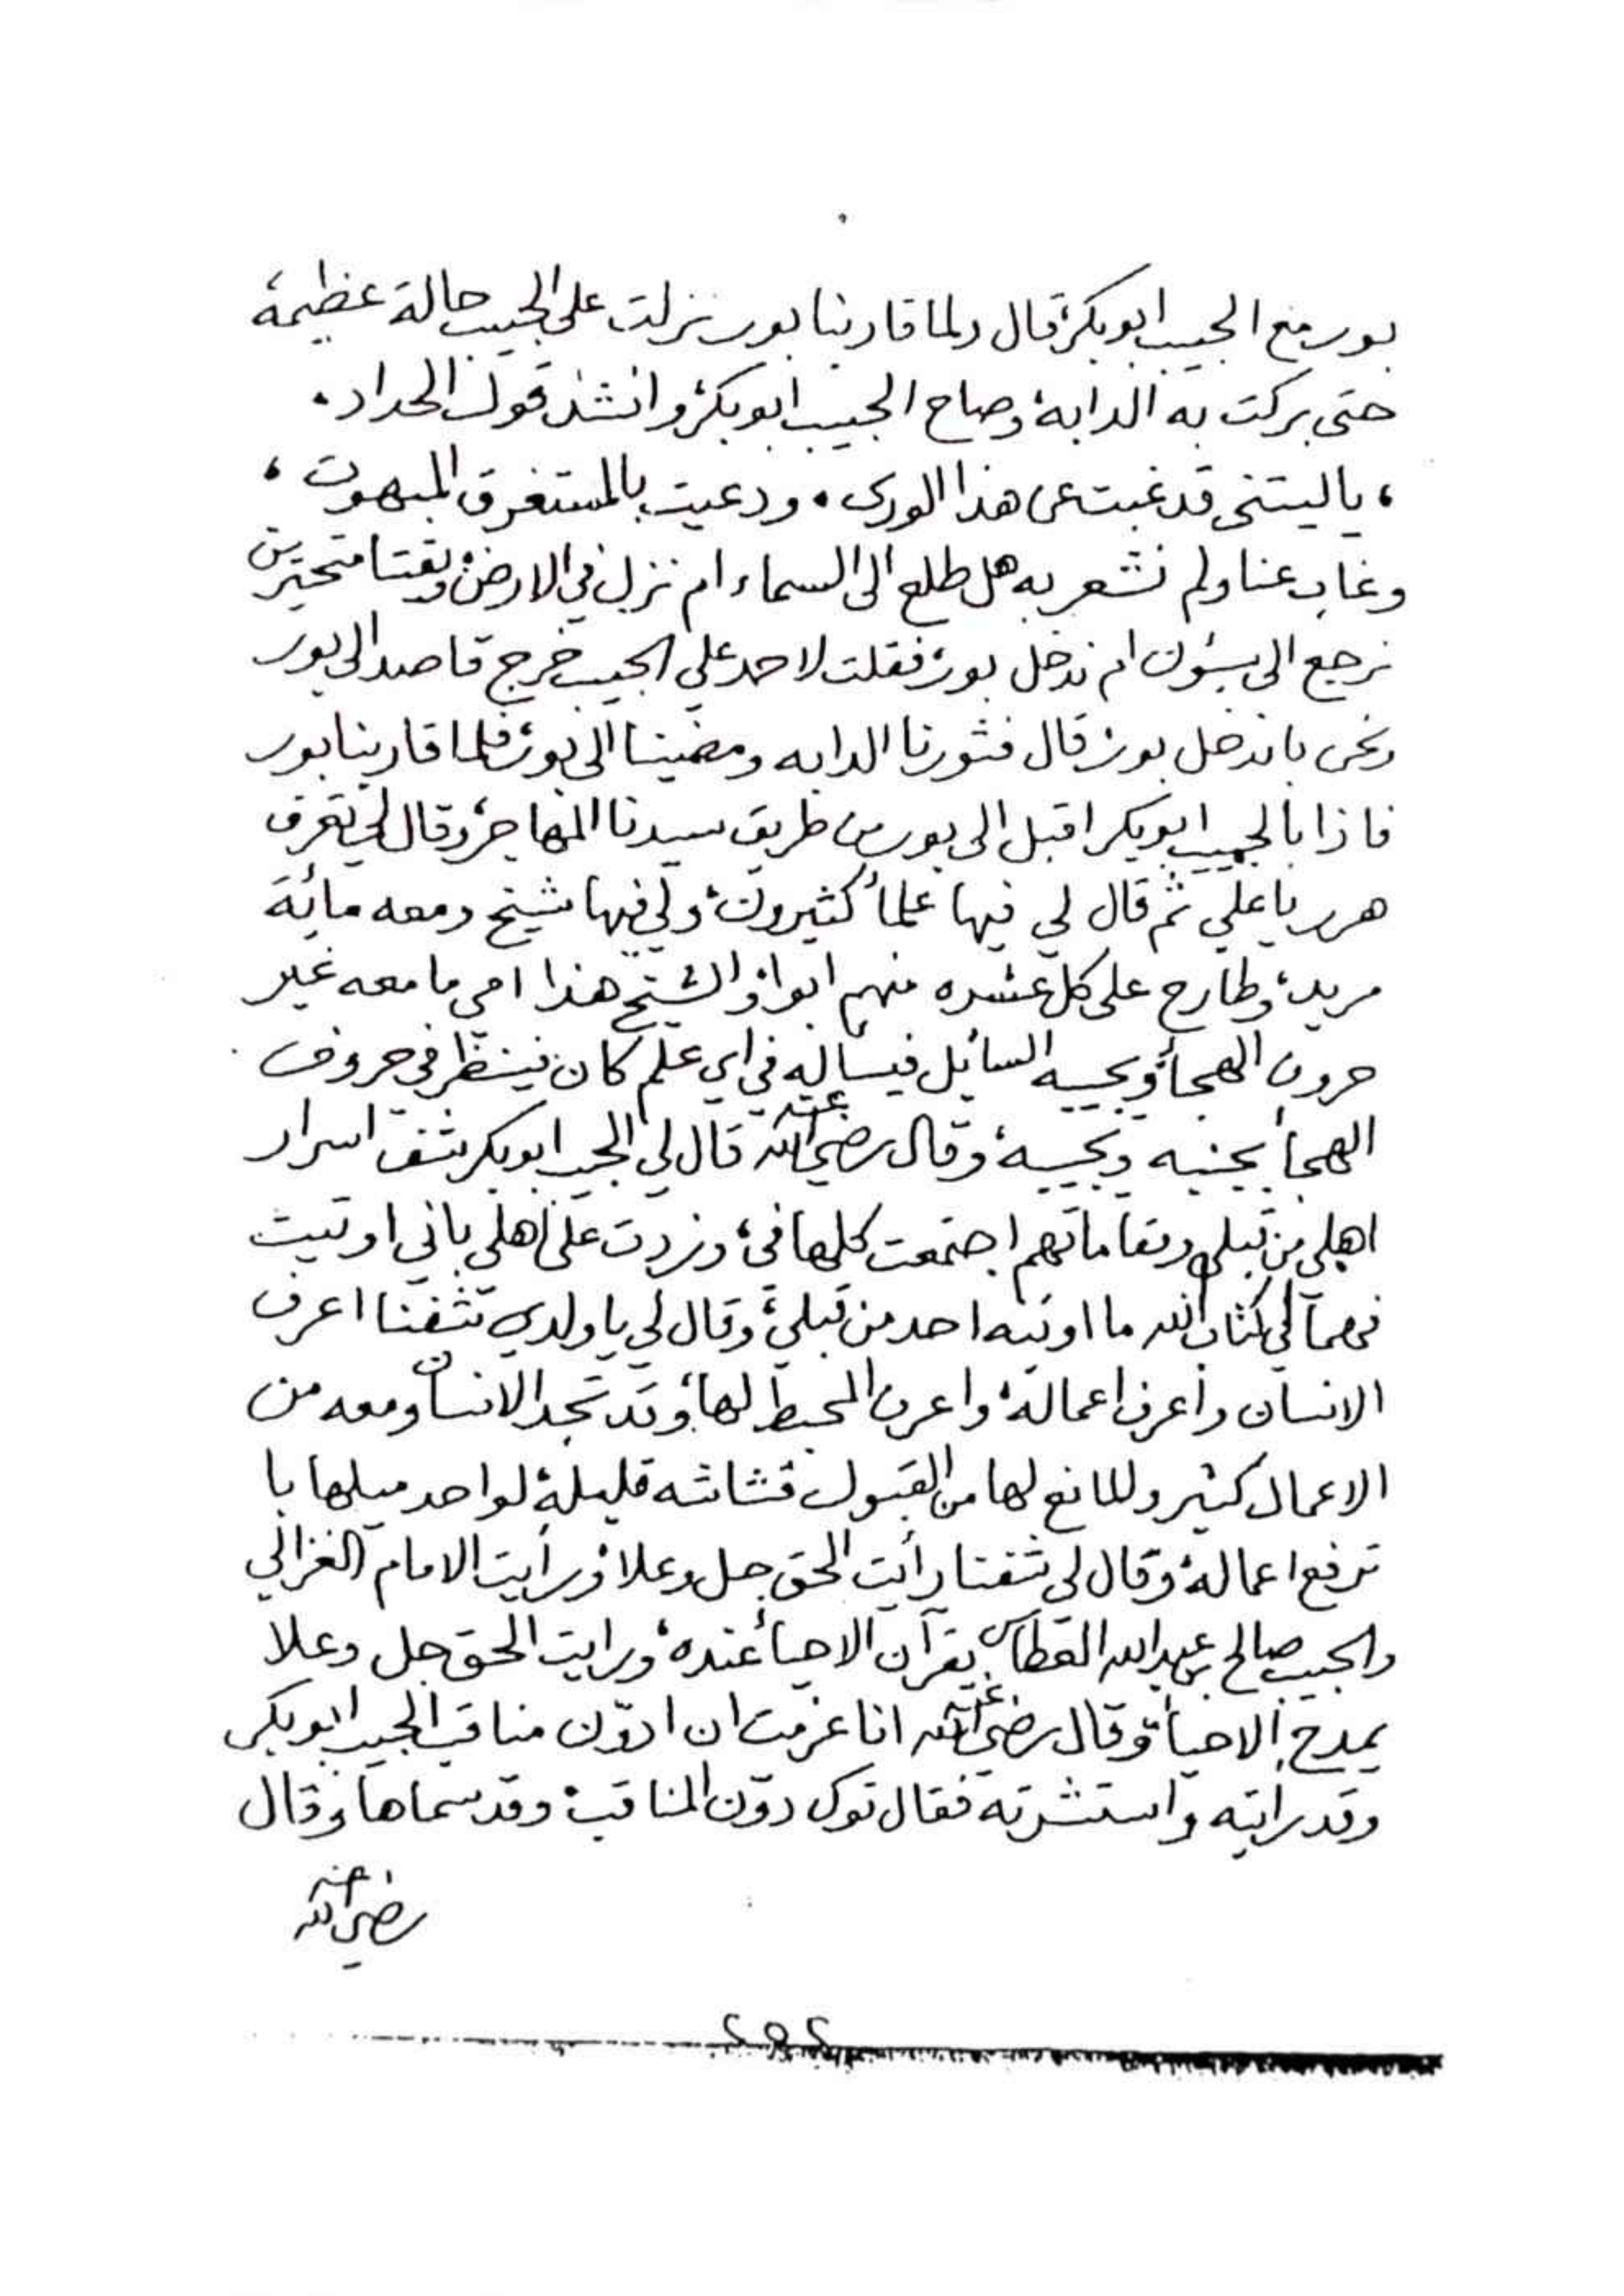 بور مع الحبيب ابوبكر، قال ولما قاربنا بور نزلت على الحبيب حالة عظيمة
حتى بركت به الدابة، وصاح الحبيب ابوبكر، وانشد قول الحداد.
، ياليتني قد غبت عن هذا الورى . ودعيت بالمستغرق المبهوت ،
وغاب عنا ولم نشعر به هل طلع الى السماء ام نزل في الارض، وبقينا متحيرين
نرجع الى ام ندخل بور، فقلت لاحمد علي الحبيب خرج قاصد الى بور
ونحن باندخل بور، قال فثورنا الدابه ومضينا الى بور، فلما قاربنا بور
فاذا بالحبيب ابوبكر اقبل الى بور من طريق سيدنا المهاجر، وقال لي تعرف
هرر ياعلي ثم قال لي فيها علمأ كثيرون، ولي فيها شيخ ومعه مائة
مريد، وطارح على كل عشره منهم ابوا، والشيخ هذا امي مامعه غير
حروف الهجأ، ويجيه السائل فيسأله في اي علم كان فينظر في حروف
الهجأ يجنبه ويجيبه، وقال رضي الله عنه قال لي الحبيب ابوبكر شف اسرار
اهلي من قبلي ومقاماتهم اجتمعت كلها في، وزدت على اهلي باني اوتيت
فهماً في كتاب الله ما اوتيه احد من قبلي، وقال لي ياولدي تشفنا اعرف
الانسان واعرف اعماله، واعرف المحبط لها، وقد تجد الانسان ومعه من
الاعمال كثير والمانع لها من القبول قشاشه قليلة، لو احد ميلها با
ترفع اعماله، وقال لي شفنا رأيت الحق جل وعلا، ورأيت الامام الغزالي
والحبيب صالح بن عبدالله العطاس يقرآن الاحيأ عنده، ورايت الحق جل وعلا
يمدح الاحيأ، وقال رضي الله عنه انا عزمت ان ادوّن مناقب الحبيب ابوبكر
وقد رايته واستشرته فقال توك دوّن المناقب، وقد سماها، وقال
رضي الله عنه
٢٥٢